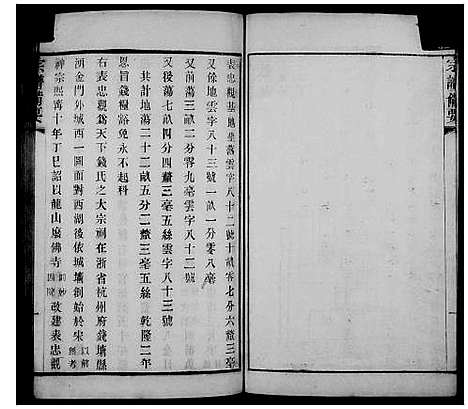 宗譜備要
表忠觀基地坐落雲字八十二號十畝零七分六釐三毫
又餘地雲字八十三號一畝一分零八毫
又蕩二畝二分零九毫雲字八十二號
又後蕩七畝四分四釐三毫五絲雲字八十三號
共計地蕩二十二畝五分二釐三毫五絲 乾隆二年
恩旨錢糧豁免永不起科
右表忠觀為天下錢氏之大宗祠在浙省杭州府錢塘縣
湖金門外城西一圖面對西湖後依城墻創始於宋以前無考
神宗熙甯十年丁巳詔以龍山廢佛寺即妙因院改建表忠觀
宗譜備要